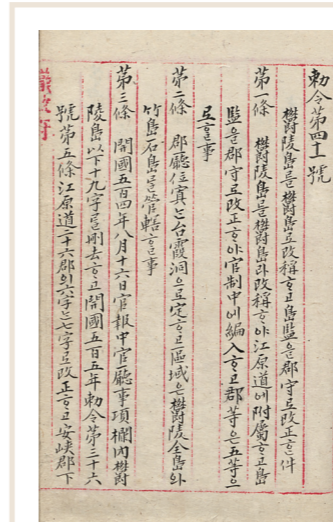 勅令第四十一號
欝陵島를欝島로改稱하고島監을郡守로改正한件
第一條 欝陵島를欝島라改稱하야江原道에附屬하고島
監을郡守로改正하야官制中에編入하고郡等은五等으
로할事
第二條 郡廳位寘는台霞洞으로定하고區域은欝陵全島와
竹島石島를管轄할事
第三條 開國五百四年八月十六日官報中官廳事項欄內欝
陵島以下十九字를刪去하고開國五百五年勅令第三十六
號第五條江原道二十六郡의六字는七字로改正하고安峽郡下